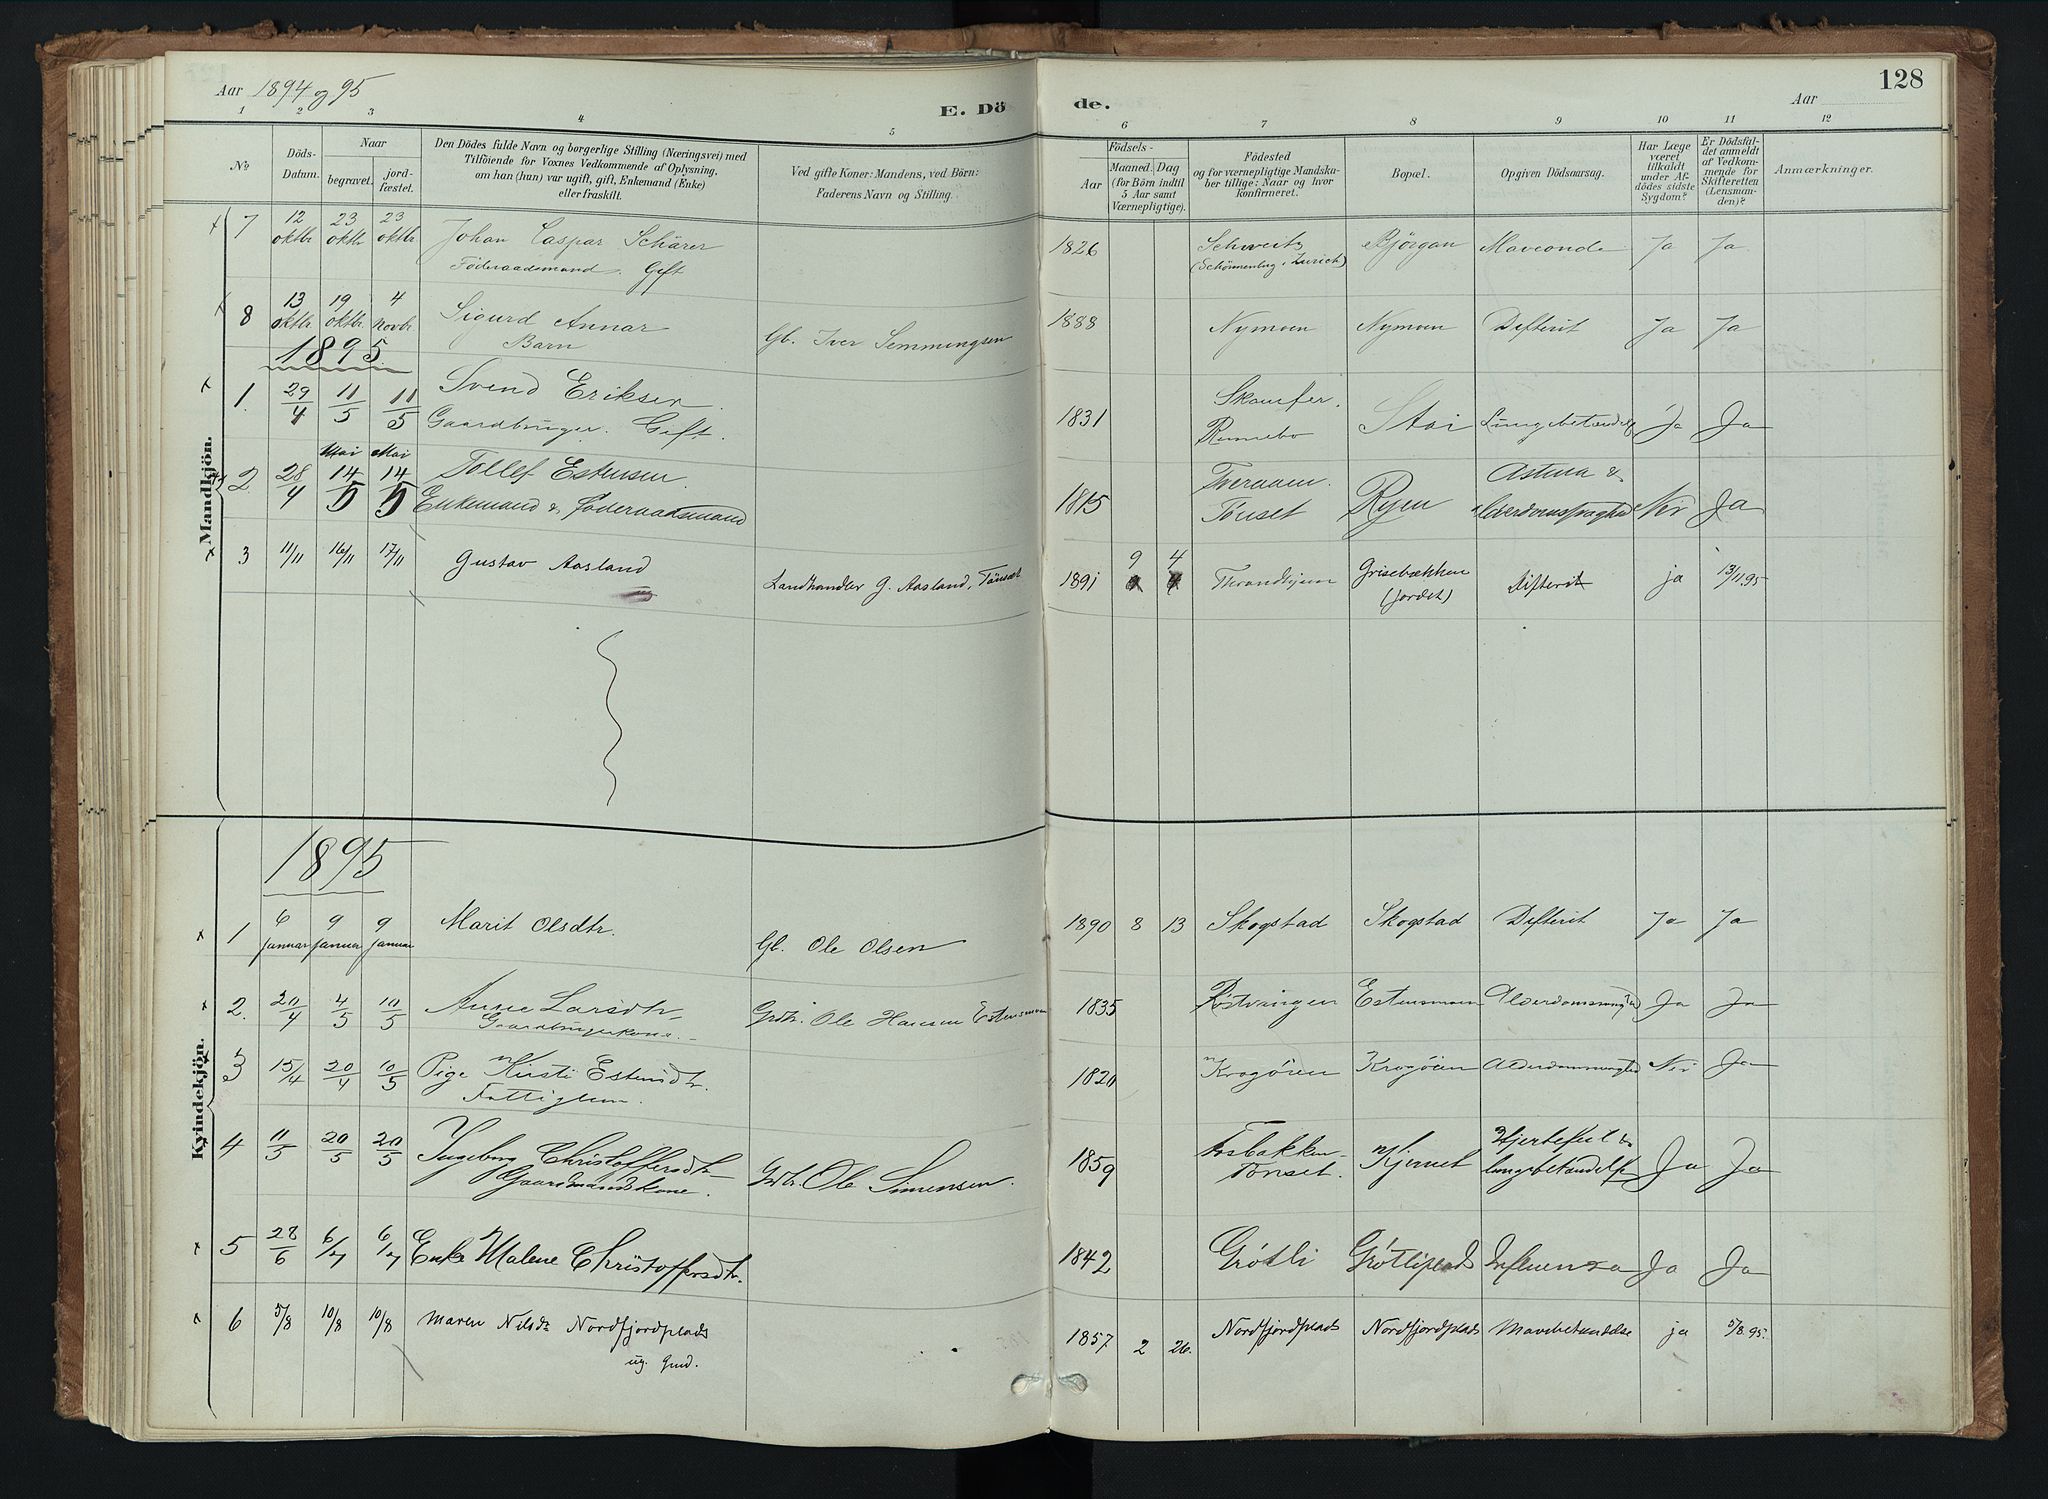 Aar 1894 og 95
E. Dö de.
Aar
128
1 2 3 4 5 6 7 8 9 10 11 12
No. Döds-Datum. Naar begravet. jord-fæstet.
Den Dödes fulde Navn og borgerlige Stilling (Næringsvei) med
Tilföiende for Voxnes Vedkommende af Oplysning,
om han (hun) var ugift, gift, Enkemand (Enke)
eller fraskilt.
Ved gifte Koner: Mandens, ved Börn:
Faderens Navn og Stilling.
Födsels-
Aar Maaned. Dag
(for Börn indtil
5 Aar samt
Værnepligtige).
Födested
og for værnepligtige Mandska-
ber tillige: Naar og hvor
konfirmeret.
Bopæl.
Opgiven Dödsaarsag.
Har Læge
været
tilkaldt
under Af-
dödes sidste
Sygdom?
Er Dödsfal-
det anmeldt
af Vedkom-
mende for
Skifteretten
(Lensman-
den)?
Anmærkninger.
Mandkjön.
7 12 oktbr 23 oktbr 23 oktbr Johan Caspar Schärer 1826 Schweitz Bjørgan Ja Ja
Føderaadsmand. Gift (Schönnenberg i Zurich)
8 13 oktbr 19 oktbr 4 Novbr Sigurd Annar Gb. Iver Semmingsen 1888 Nymoen Nymoen Difterit Ja Ja
Barn
1895.
1. 29/4 11/5 11/5 Svend Eriksen. 1831 Stai Lungebetændelse Ja Ja
Gaardbruger. Gift.
Mai Mai
2. 28/4 14/5 14/5 Tollef Estensen. 1815 Ryen Astma & Nei Ja
Enkemand & Føderaadsmand Tönset
3 11/11 16/11 17/11 Gustav Aasland Landhandler G. Aasland, Tönset 1891 9 4 Throndhjem Grisebækken (Jordet) Difterit ja 13/11 95
Kvindekjön.
1895
1 6 Januar 9 Januar 9 Januar Marit Olsdtr. Gb. Ole Olsen 1890 8 13 Skogstad Skogstad Difterit Ja Ja
2. 20/4 4/5 10/5 Anne Larsdtr Grdbr. Ole Hansen Estensmoen 1835 Røstvangen Estensmoen Ja Ja
Gaardbrugerkone.
3 15/4 20/4 10/5 Pige Kirsti Estensdtr. 1820 Krogöien Krogöien Nei Ja
Fattiglem.
4 11/5 20/5 20/5 Ingeborg Christoffersdtr Grdbr. Ole Simensen. 1859 Fosbakken Tönset. Kjernet Hjertefeil & lungebetændelse Ja Ja
Gaardmandskone.
5 28/6 6/7 6/7 Enke Malene Christoffersdtr. 1842 Grøtli Grøtliplads Influenza Ja Ja
6 5/8 10/8 10/8 Maren Nilsdr Nordfjordplads 1857 2 26. Nordfjordplads Nordfjordplads Mavebetændelse ja 5/8 95.
ug.